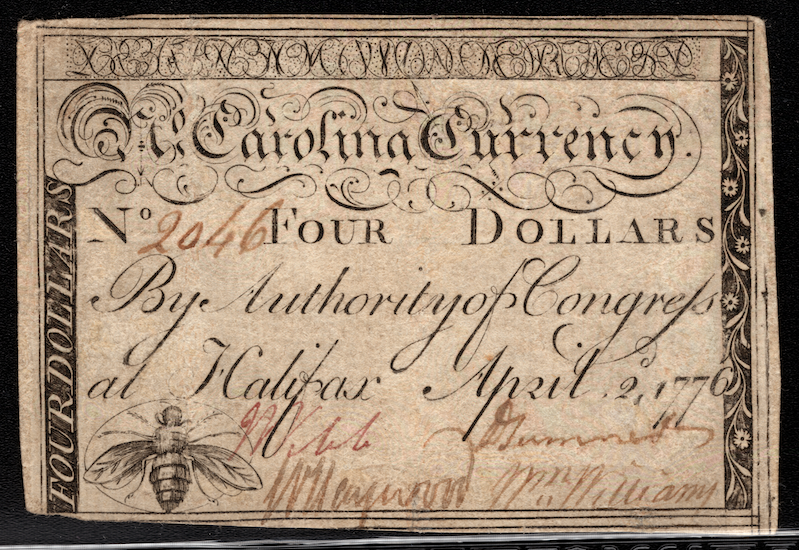 No. Carolina Currency.
No 2046 Four Dollars
By Authority of Congreſs
at Halifax April 2d, 1776
FOUR DOLLARS
J Webb
Wm Williams